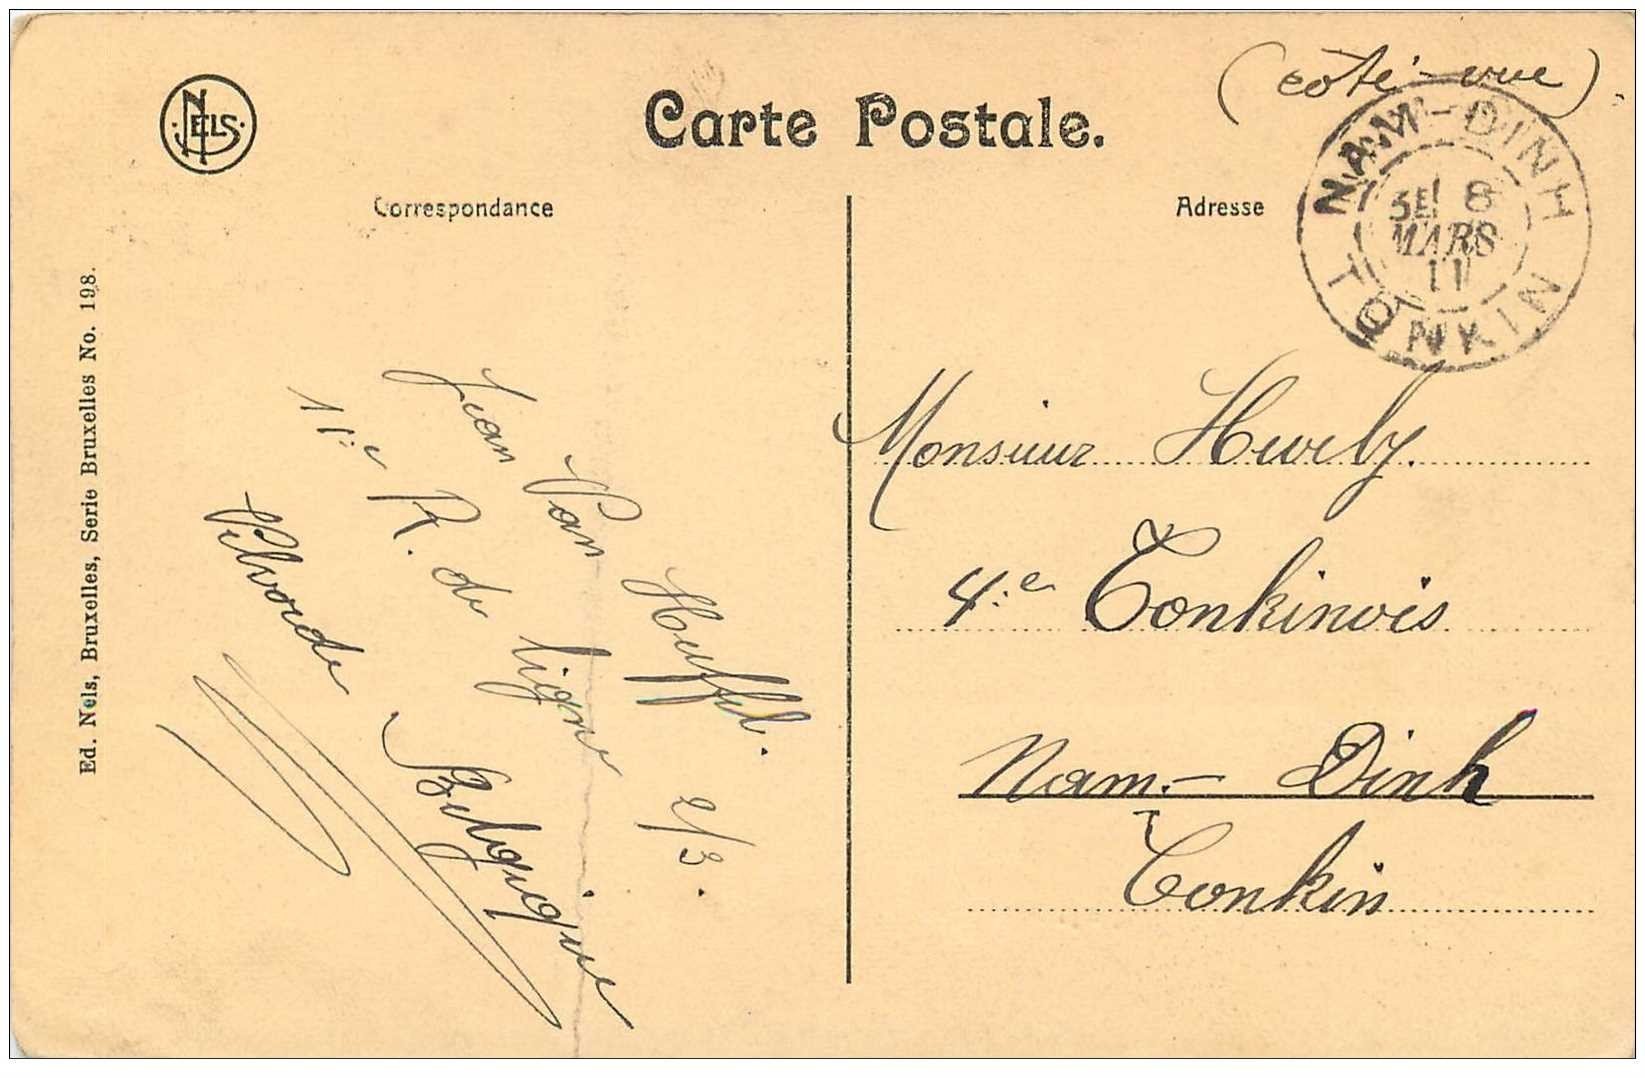 (côté-vue).
NELS
Carte Postale.
Correspondance
Adresse
NAM-DINH
8
MARS
11
TONKIN
Ed. Nels, Bruxelles, Serie Bruxelles No. 198.
Jean Van Huffel. 2/3.
11:e R. de ligne Belgique
Vilvorde
Monsieur
4:e Tonkinois
Nam-Dinh
Tonkin